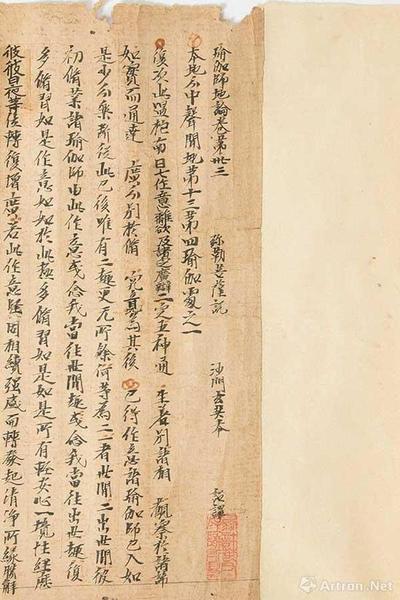 瑜伽師地論卷第卅三 弥勒菩薩說 沙門玄奘奉 詔譯
本地分中聲聞地第十三第四瑜伽處之一
復次此嗢柁南曰七作意離欲及諸定廣辯二定五神通 生差別諸相 觀察於諸諦
如實而通達 廣分別於修 究竟為其後 已得作意諸瑜伽師已入如
是少分樂斷從此已後唯有二趣更无所餘何等為二一者世間二出世間彼
初修業諸瑜伽師由此作意或念我當往世間趣或念我當往出世趣復
多修習如是作意如如於此極多修習如是如是所有輕安心一境性經歷
彼彼日夜等位轉復增廣若此作意堅固相續強盛而轉發起清淨所緣勝解
Artron.Net